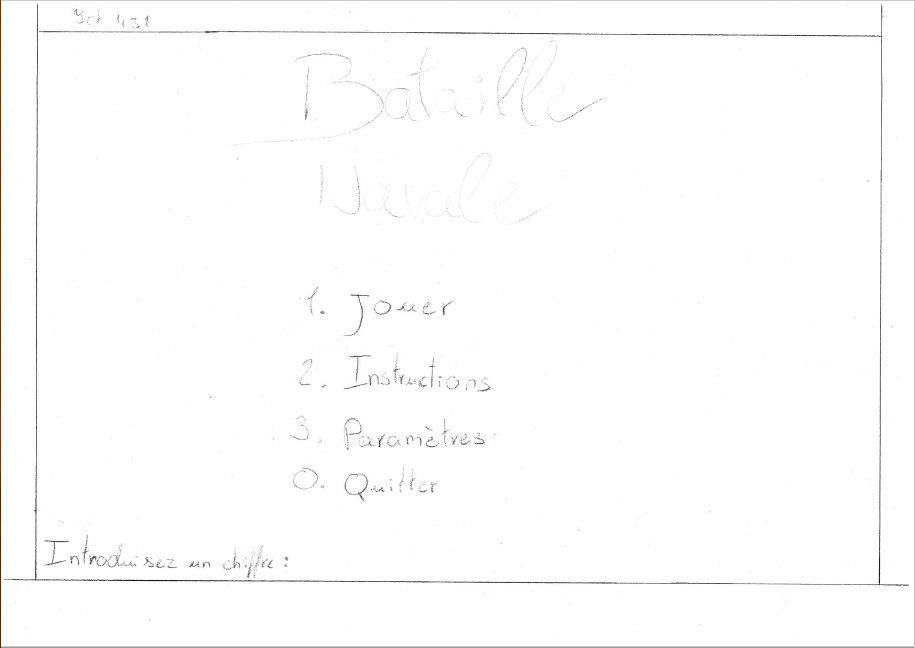 Ict 431
Bataille
Navale
1. Jouer
2. Instructions
3. Paramètres
0. Quitter
Introduisez un chiffre :